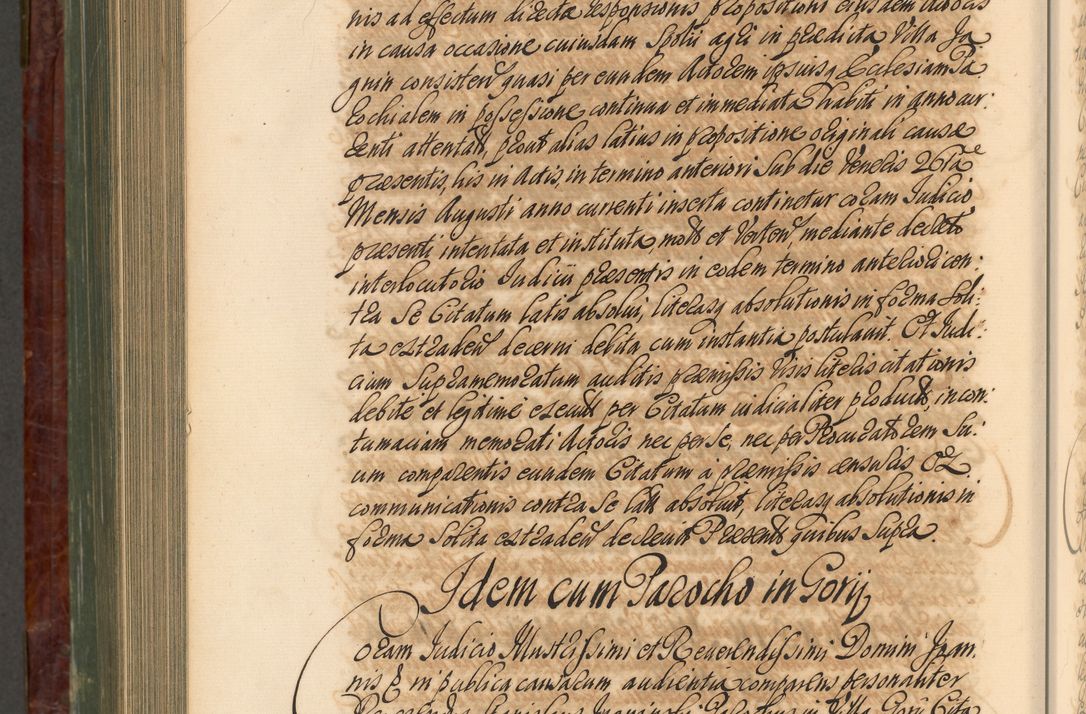 nis ad effectum directæ responsionis propositioni eiusdem Actoris
in causa occasione cuiusdam Spolii agri in prædicta Villa Ja
gnin consisten quasi per eundem Actorem ipsiusq Ecclesiam Pa
rochialem in possessione continua et immediata habiti in anno cur:
renti attentati, prout alias latius in propositione originali causæ
præsentis, his in Actis, in termino anteriori sub die Veneris 26ta
Mensis Augusti anno currenti inserta continetur coram Judicio
præsenti intentata et instituta, mod et Verten, mediante decreto
interlocutorio Judicii præsentis in eodem termino anteriori con:
tra Se Citatum latis absolui, literasq absolutionis in forma soli:
ta extraden decerni debita cum instantia postulauit. Et Judi:
cium Supramemoratum auditis præmissis Visis literis citationis
debite et legitime execut per Citatum iudicialiter product, in con:
tumaciam memorati Actoris nec per se, nec per Procuratorem Su:
um comparentis eundem Citatum à præmissis censuris
communicationis contra Se lat absoluit, literasq absolutionis in
forma Solita extraden decreuit Præsent quibus supra
Idem cum Parocho in Gorij
Coram Judicio Illustrissimi et Reuerendissimi Domini Joan
nis in publica causarum audientia comparens personaliter
in Villa Gorij Cita